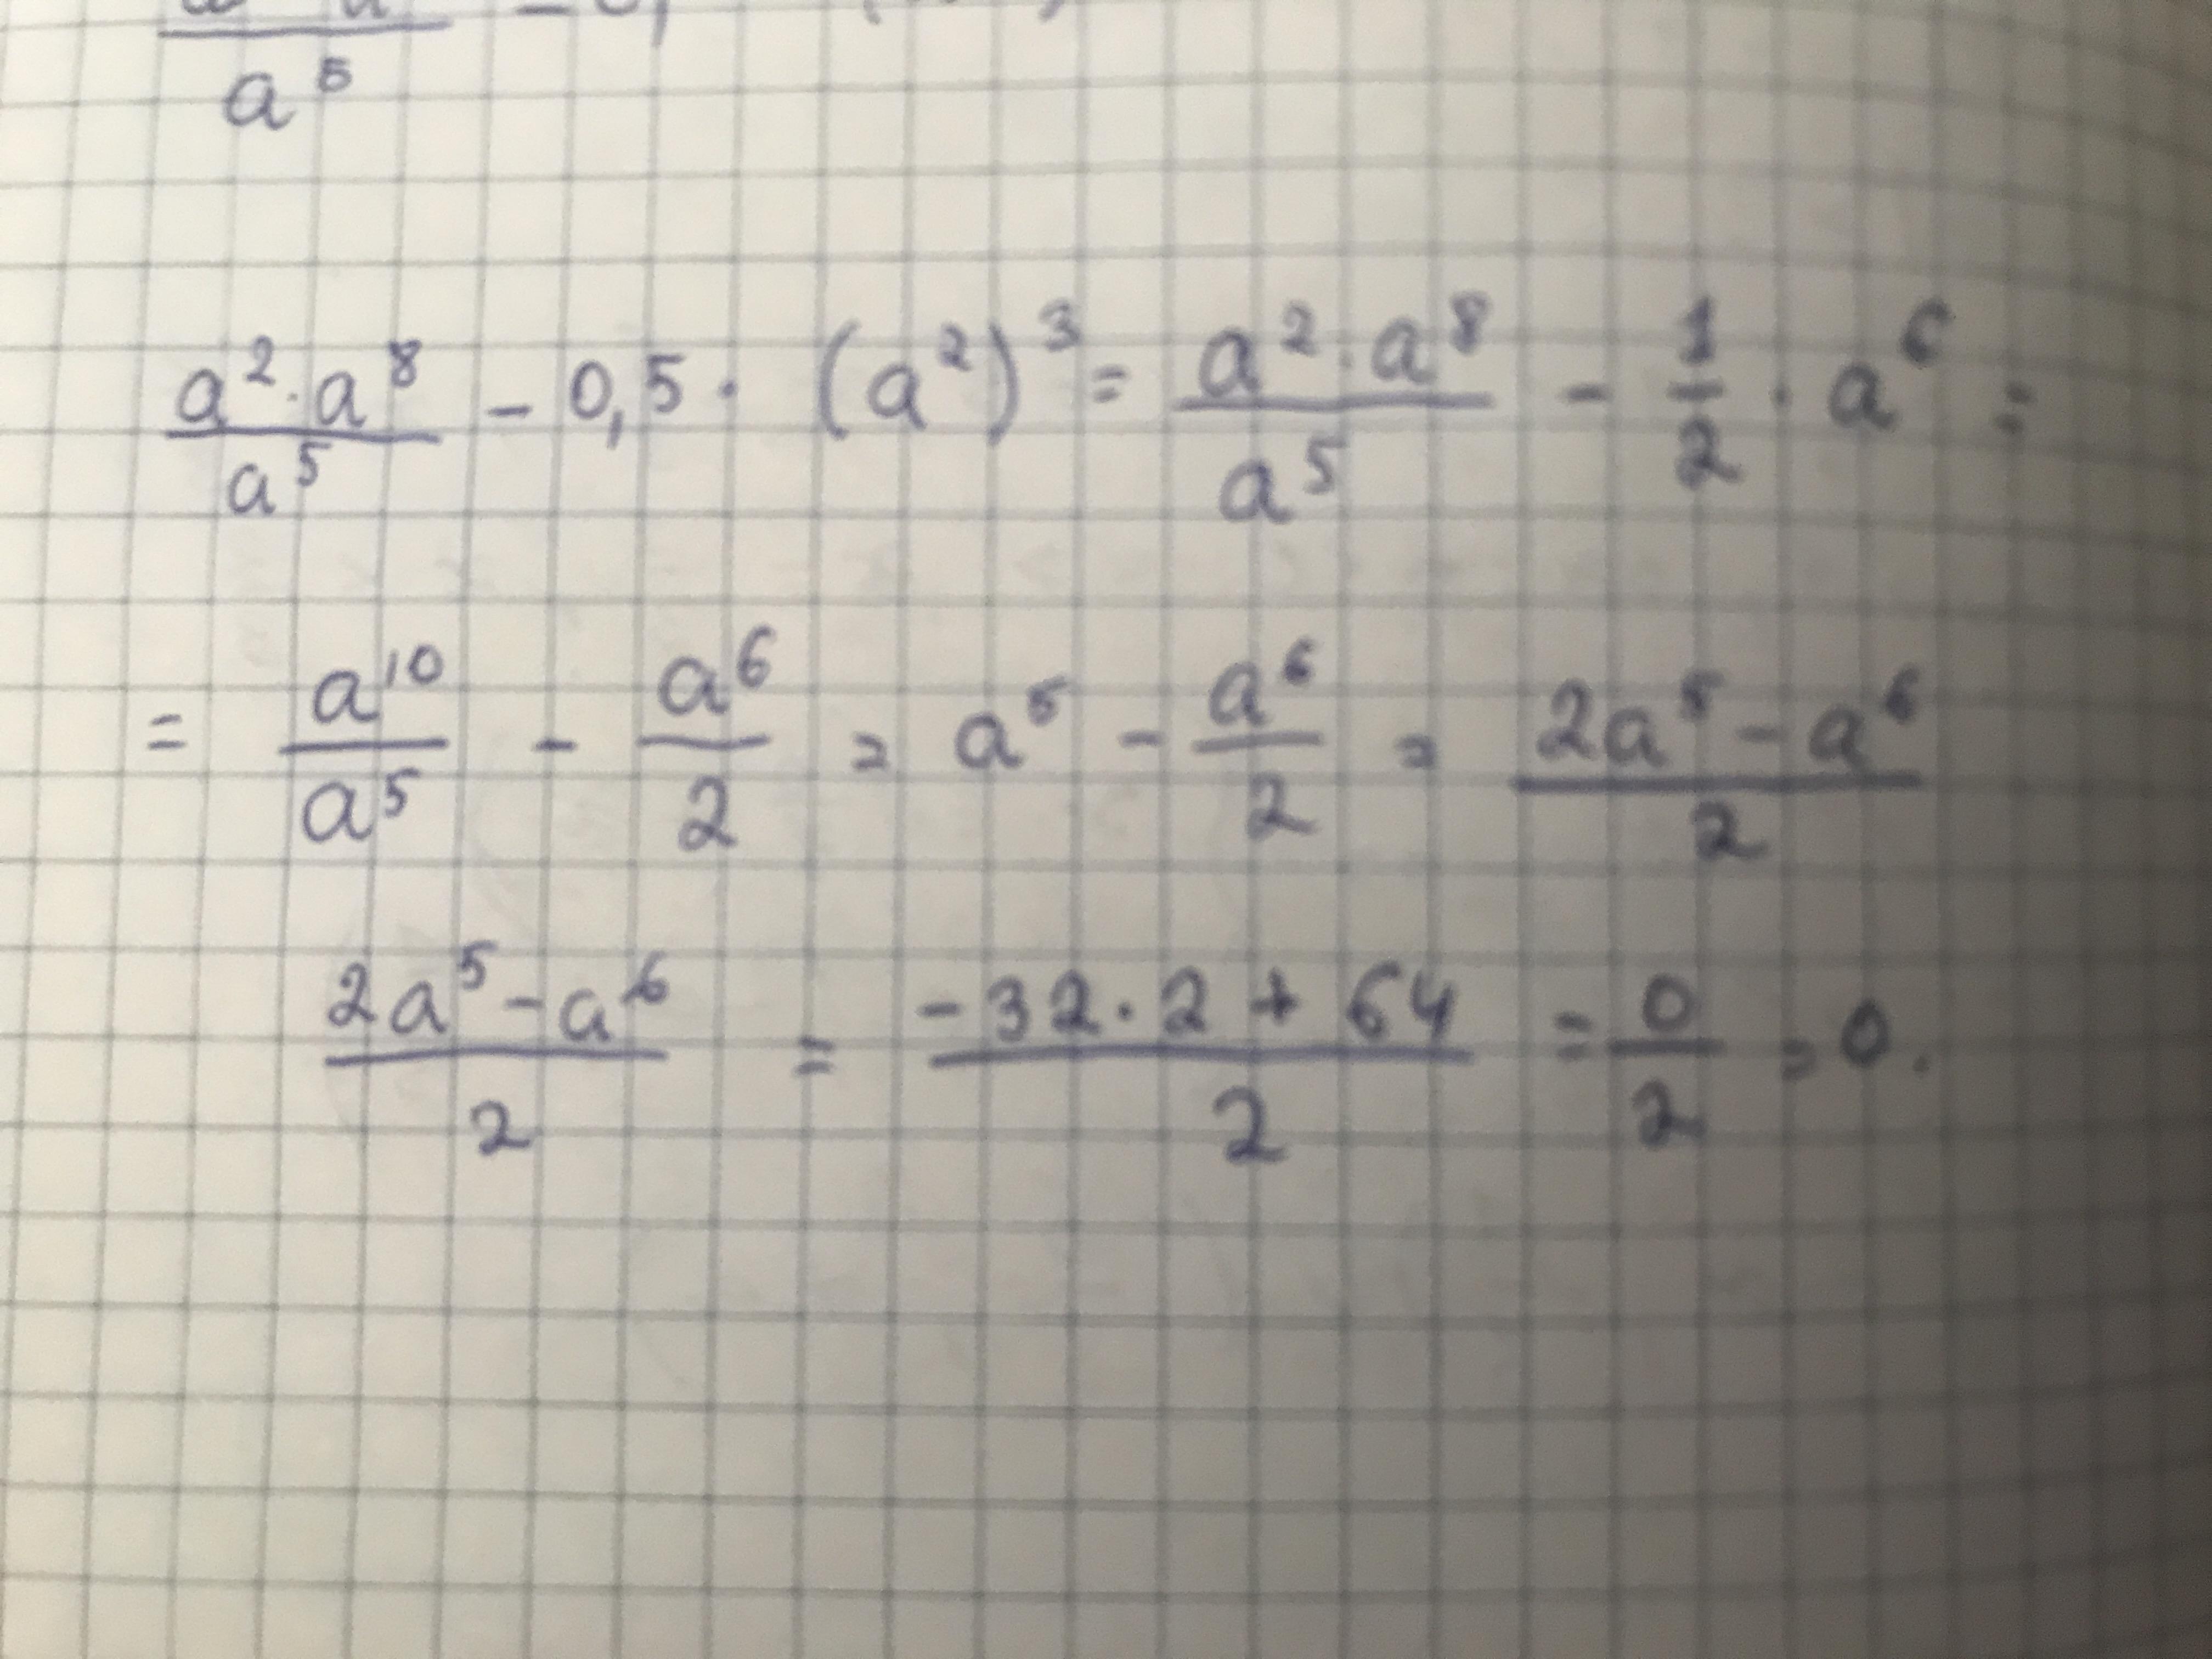 a⁵
(a²·a⁸)/a⁵ - 0,5 · (a²)³ = (a²·a⁸)/a⁵ - 1/2 · a⁶ =
= a¹⁰/a⁵ - a⁶/2 = a⁵ - a⁶/2 = (2a⁵-a⁶)/2
(2a⁵-a⁶)/2 = (-32·2+64)/2 = 0/2 = 0.